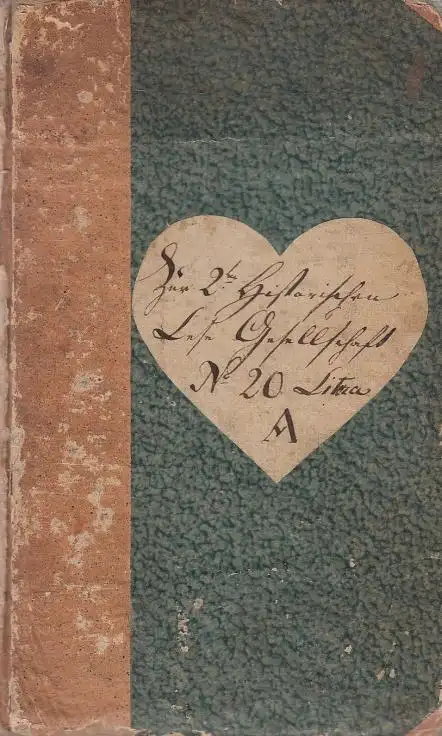 Zur 2ten Historischen
Lese Gesellschaft
No 20 Littra
A